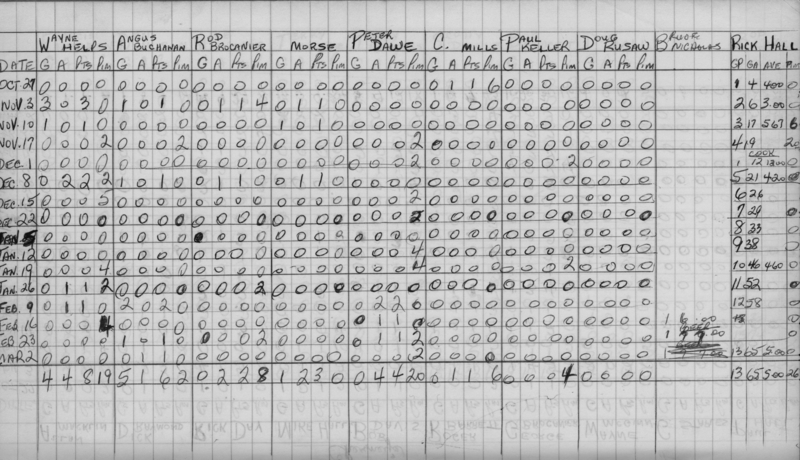 WAYNE HELPS ANGUS BUCHANAN ROD BROCANIER MORSE PETER DAWE C. MILLS PAUL KELLER DOUG RUSAW BRUCE NICHOLAS RICK HALL
DATE G A Pts Pim G A Pts Pim G A Pts Pim G A Pts Pim G A Pts Pim G A Pts Pim G A Pts Pim G A Pts Pim GP GA AVE Pim
OCT 27 0 0 0 0 0 0 0 0 0 0 0 0 0 0 0 0 0 0 0 0 0 1 1 6 0 0 0 0 0 0 0 0 1 4 4.00 0
NOV. 3 3 0 3 0 1 0 1 0 0 1 1 4 0 1 1 0 0 0 0 0 0 0 0 0 0 0 0 0 0 0 0 0 2 6 3.00 0
NOV. 10 1 0 1 0 0 0 0 0 0 0 0 0 1 0 1 0 0 0 0 0 0 0 0 0 0 0 0 0 0 0 0 0 3 17 5.67 6
NOV. 17 0 0 0 2 0 0 0 2 0 0 0 0 0 0 0 0 0 0 0 2 0 0 0 0 0 0 0 0 0 0 0 0 4 19 20
COOK
DEC. 1 0 0 0 0 0 0 0 0 0 0 0 0 0 0 0 0 0 0 0 2 0 0 0 0 0 0 0 2 0 0 0 0 1 12 0
DEC. 8 0 2 2 2 1 0 1 0 0 1 1 0 0 1 1 0 0 0 0 0 0 0 0 0 0 0 0 0 0 0 0 0 5 21 4.20 0
DEC. 15 0 0 0 5 0 0 0 0 0 0 0 0 0 0 0 0 0 0 0 2 0 0 0 0 0 0 0 0 0 0 0 0 6 26
DEC. 22 0 0 0 0 0 0 0 0 0 0 0 0 0 0 0 0 0 0 0 2 0 0 0 0 0 0 0 0 0 0 0 0 7 29 0
JAN. 5 0 0 0 0 0 0 0 0 0 0 0 0 0 0 0 0 0 0 0 0 0 0 0 0 0 0 0 0 0 0 0 0 8 33 0
JAN. 12 0 0 0 0 0 0 0 0 0 0 0 0 0 0 0 0 0 0 0 4 0 0 0 0 0 0 0 0 0 0 0 0 9 38
JAN. 19 0 0 0 4 0 0 0 0 0 0 0 0 0 0 0 0 0 0 0 4 0 0 0 0 0 0 0 2 0 0 0 0 10 46 4.60 0
JAN. 26 0 1 1 2 0 0 0 0 0 0 0 2 0 0 0 0 0 0 0 0 0 0 0 0 0 0 0 0 0 0 0 0 11 52 0
FEB. 9 0 1 1 0 2 0 2 0 0 0 0 0 0 0 0 0 0 2 2 0 0 0 0 0 0 0 0 0 0 0 0 0 12 58 0
FEB. 16 0 0 0 4 0 0 0 0 0 0 0 0 0 0 0 0 0 1 1 0 0 0 0 0 0 0 0 0 0 0 0 0 1 6 .00
FEB. 23 0 0 0 0 1 0 1 0 0 0 0 2 0 0 0 0 0 1 1 2 0 0 0 0 0 0 0 0 0 0 0 0
MAR. 2 0 0 0 0 0 1 1 0 0 0 0 0 0 0 0 0 0 0 0 2 0 0 0 0 0 0 0 0 0 0 0 0 13 65 5.00 0
4 4 8 19 5 1 6 2 0 2 2 8 1 2 3 0 0 4 4 20 0 1 1 6 0 0 0 4 0 0 0 0 13 65 5.00 26